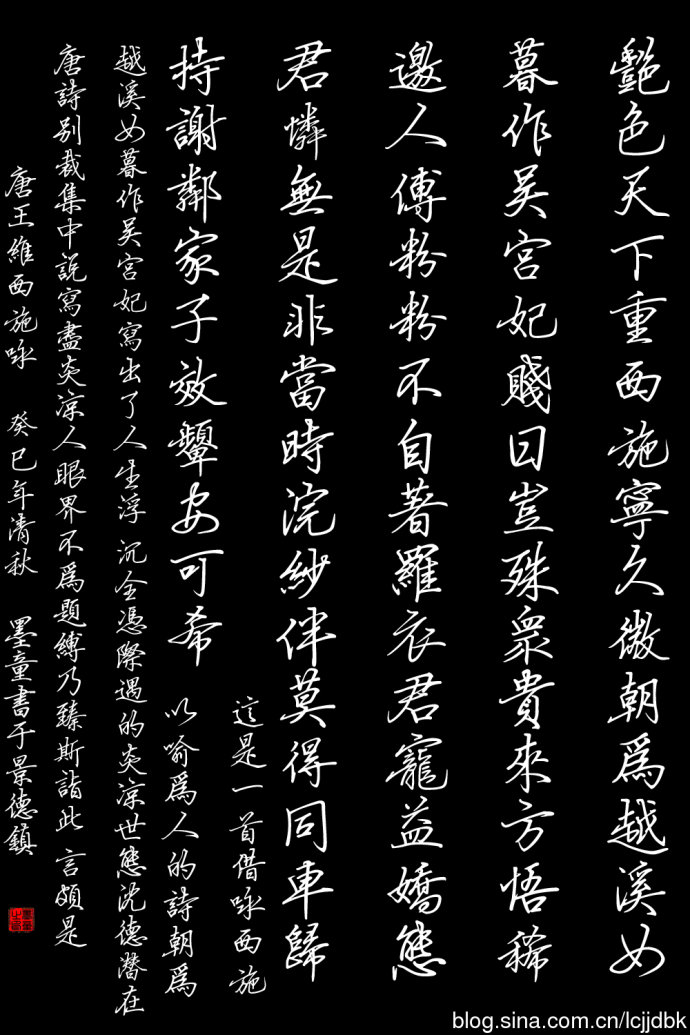 艷色天下重西施寧久微朝爲越溪女
暮作吴宮妃賤日豈殊衆貴來方悟稀
邀人傅粉粉不自著羅衣君寵益嬌態
君憐無是非當時浣紗伴莫得同車歸
持謝鄰家子效顰安可希
這是一首借咏西施
以喻爲人的詩朝爲
越溪女暮作吴宮妃寫出了人生浮沉全憑際遇的炎凉世態沈德潛在
唐詩别裁集中説寫盡炎凉人眼界不爲題縛乃臻斯詣此言頗是
唐王維西施咏 癸巳年清秋 墨童書于景德鎮
blog.sina.com.cn/lcjjdbk